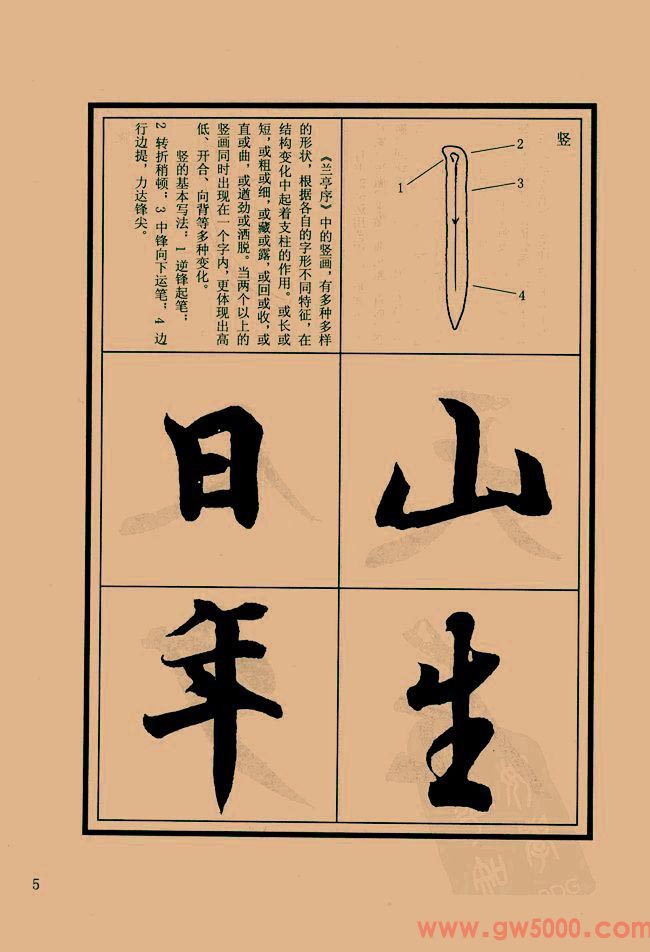 竖
2
1
3
4
《兰亭序》中的竖画，有多种多样
的形状，根据各自的字形不同特征，在
结构变化中起着支柱的作用。或长或
短，或粗或细，或藏或露，或回或收，或
直或曲，或遒劲或洒脱。当两个以上的
竖画同时出现在一个字内，更体现出高
低、开合、向背等多种变化。
竖的基本写法：1 逆锋起笔；
2 转折稍顿；3 中锋向下运笔；4 边
行边提，力达锋尖。
山
日
生
年
5
www.gw5000.com